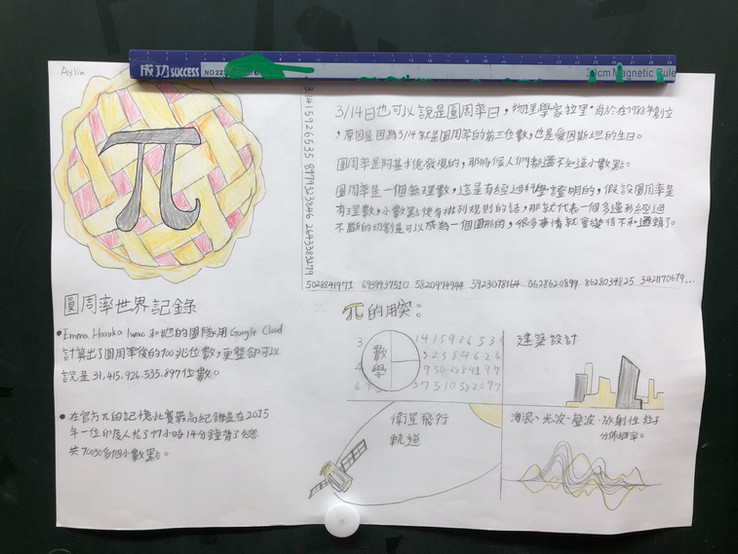 成功 SUCCESS
cm Magnetic Rule
Aylin
π
3.1415926535 8979323846 2643383279
3/14日也可以說是圓周率日,物理學家拉里·肖於在1988年創立
,原因是因為3/14就是圓周率的前三位數,也是愛因斯坦的生日。
圓周率是阿基米德發現的,那時候人們都還不知道小數點。
圓周率是一個無理數,這是有經過科學證明的,假設圓周率是
有理數,小數點後有排列規則的話,那就代表一個多邊形經過
不斷的切割是可以成為一個圓形的,很多事情就會變得不和邏輯了。
5028841971 6939937510 5820974944 5923078164 0628620899 8628034825 3421170679...
圓周率世界記錄
•Emma Haruka Iwao 和她的團隊用 Google Cloud
計算出了圓周率後的100兆位數,更整卻可以
說是31,415,926,535,897位數。
•在官方π的記憶比賽最高紀錄是在2015
年一位印度人花了17小時14分鐘背了
共70030多個小數點。
π的用突:
數學
建築設計
衛星飛行
軌道
海浪、光波、聲波、放射性粒子
分佈頻率。